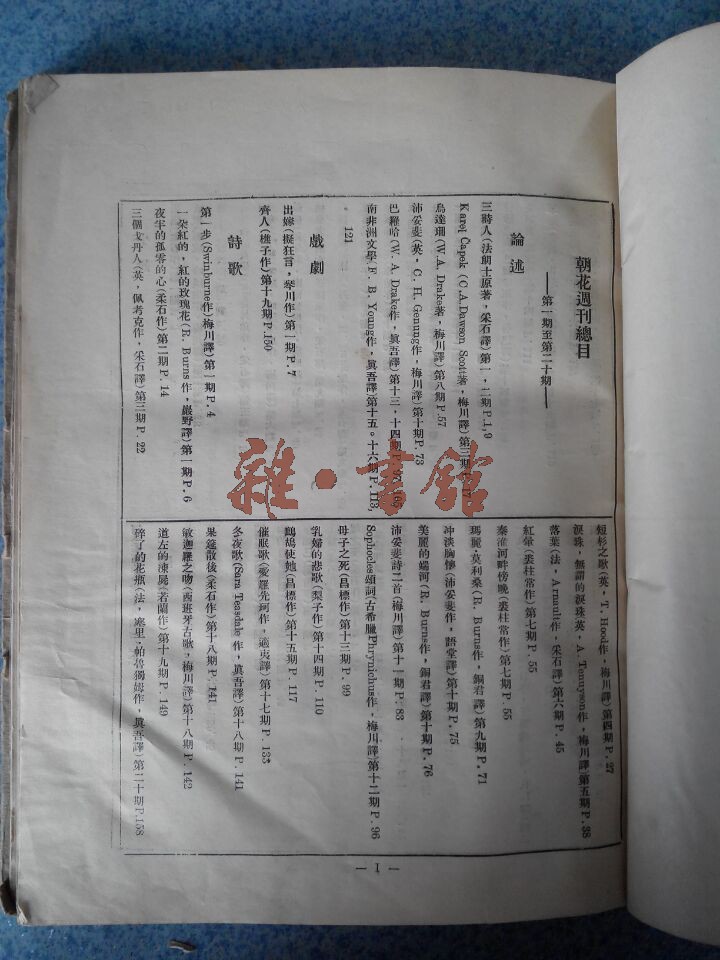 朝花週刊總目
——第一期至第二十期——
論述
三時人(法朗士原著，采石譯)第一，二期P.1,9
Karej Capek (C.A.Dawson Scott著，梅川譯)第三期P.17
烏達珊(W.A. Drake著，梅川譯)第八期P.57
沛妥斐(英，C. H. Genung作，梅川譯)第十期P. 73
巴羅哈(W. A. Drake作，眞吾譯)第十三，十四期P.97,105
南非洲文學(F. B. Young作，眞吾譯)第十五。十六期P.113,
121
戲劇
出嫁(擬狂言，琴川作)第一期P.7
齊人(樵子作)第十九期P.150
詩歌
第一步(Swinburne作，梅川譯)第一期P. 4
一朶紅的，紅的玫瑰花(R. Burns作，嚴野譯)第一期P. 6
夜半的孤零的心(柔石作)第二期P. 14
三個戈丹人(英，佩考克作，采石譯)第三期P. 22
短衫之歌(英，T. Hood作，梅川譯)第四期P.27
淚珠，無謂的淚珠英，A. Tennyson作，梅川譯第五期P.38
落葉(法，Arnault作，采石譯)第六期P. 45
紅暈(裘柱常作)第七期P. 55
秦淮河畔傍晚(裘柱常作)第七期P.55
瑪麗·莫利桑(R. Burns作，銅君譯)第九期P.71
冲淡胸懷(沛妥斐作，語堂譯)第十期P. 75
美麗的端河(R. Burns作，銅君譯)第十期P. 76
沛妥斐詩二首(梅川譯)第十一期P. 83
Sophocles頌詞(古希臘Phrynichus作，梅川譯第十二期P. 96
母子之死(昌標作)第十三期P. 99
乳婦的悲歌(梨子作)第十四期P. 110
鷓鴣使她(昌標作)第十五期P. 117
催眠歌(愛羅先珂作，適夷譯)第十七期P. 133
冬夜歌(Sara Teasdale作，眞吾譯)第十八期P. 141
果筵散後(柔石作)第十八期P. 141
敏迦羅之吻(西班牙古歌，梅川譯)第十八期P. 142
道左的凍屍(若蘭作)第十九期P. 149
碎了的花瓶(法，蒲里·帕魯獨姆作，眞吾譯)第二十期P.158
— I —
雜·書館